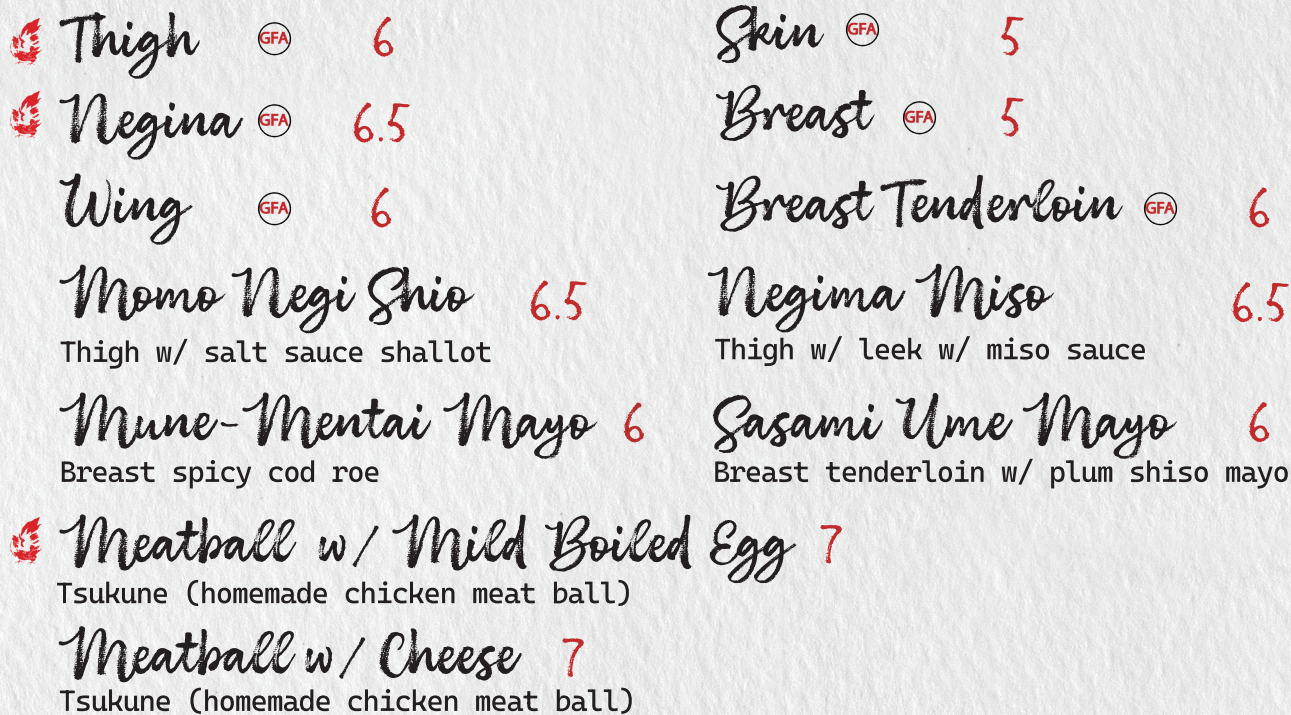 Thigh GFA 6
Negina GFA 6.5
Wing GFA 6
Momo Negi Shio 6.5
Thigh w/ salt sauce shallot
Mune-Mentai Mayo 6
Breast spicy cod roe
Meatball w/ Mild Boiled Egg 7
Tsukune (homemade chicken meat ball)
Meatball w/ Cheese 7
Tsukune (homemade chicken meat ball)
Skin GFA 5
Breast GFA 5
Breast Tenderloin GFA 6
Negima Miso 6.5
Thigh w/ leek w/ miso sauce
Sasami Ume Mayo 6
Breast tenderloin w/ plum shiso mayo